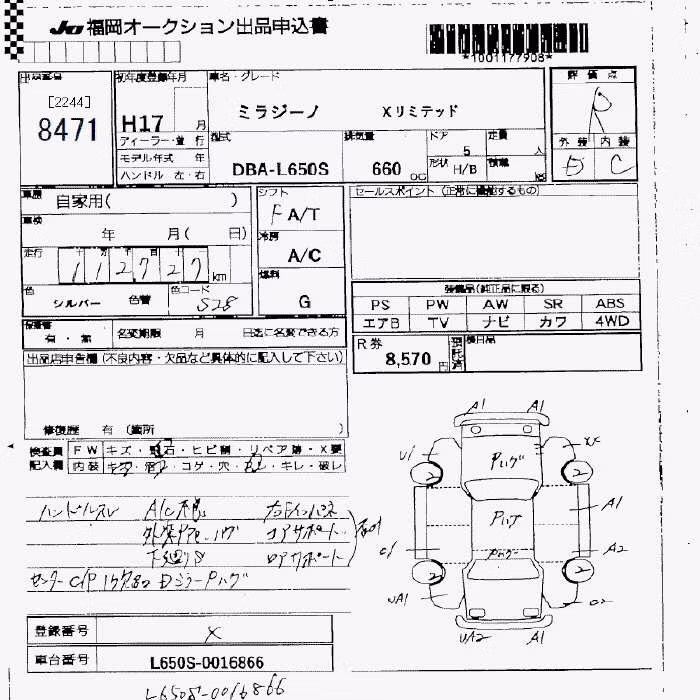 JU 福岡オークション出品申込書
*1001177908*
出品番号
[2244]
8471
初年度登録年月
H17 月
ディーラー・並行
モデル年式 年
ハンドル 左・右
車名・グレード
ミラジーノ Xリミテッド
型式
DBA-L650S
排気量
660 CC
ドア
5
形状 H/B
定員
人
積載
kg
評価点
R
外装 内装
D C
車歴
自家用( )
車検
年 月( 日)
走行
112727 km
色
シルバー 色替
色コード
S28
シフト
F A/T
冷房
A/C
燃料
G
セールスポイント(正常に機能するもの)
装備品(純正品に限る)
PS PW AW SR ABS
エアB TV ナビ カワ 4WD
保証書
有・無
名変期限 月 日迄に名変できる方
R券
8,570円
預託済
後日品
出品店申告欄(不良内容・欠品など具体的に記入して下さい)
修復歴 有(箇所 )
検査員記入欄
FW キズ・飛石・ヒビ割・リペア跡・X要
内装 キズ・汚レ・コゲ・穴・ ・キレ・破レ
ハンドルスレ A/C不良
コアサポート
下廻りS
ロアサポート
A1 A1
XX
U1
2 2
A1
A2
2 2
UA1
UA2 A1
登録番号 X
車台番号 L650S-0016866
L650S-0016866